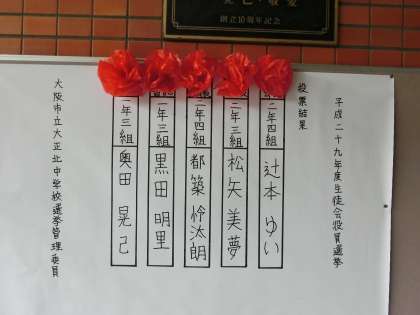 創立10周年記念
平成二十九年度生徒会役員選挙
投票結果
二年四組 辻本 ゆい
二年三組 松矢 美夢
二年四組 都築 怜汰朗
一年三組 黒田 明里
一年三組 奥田 晃己
大阪市立大正北中学校選挙管理委員